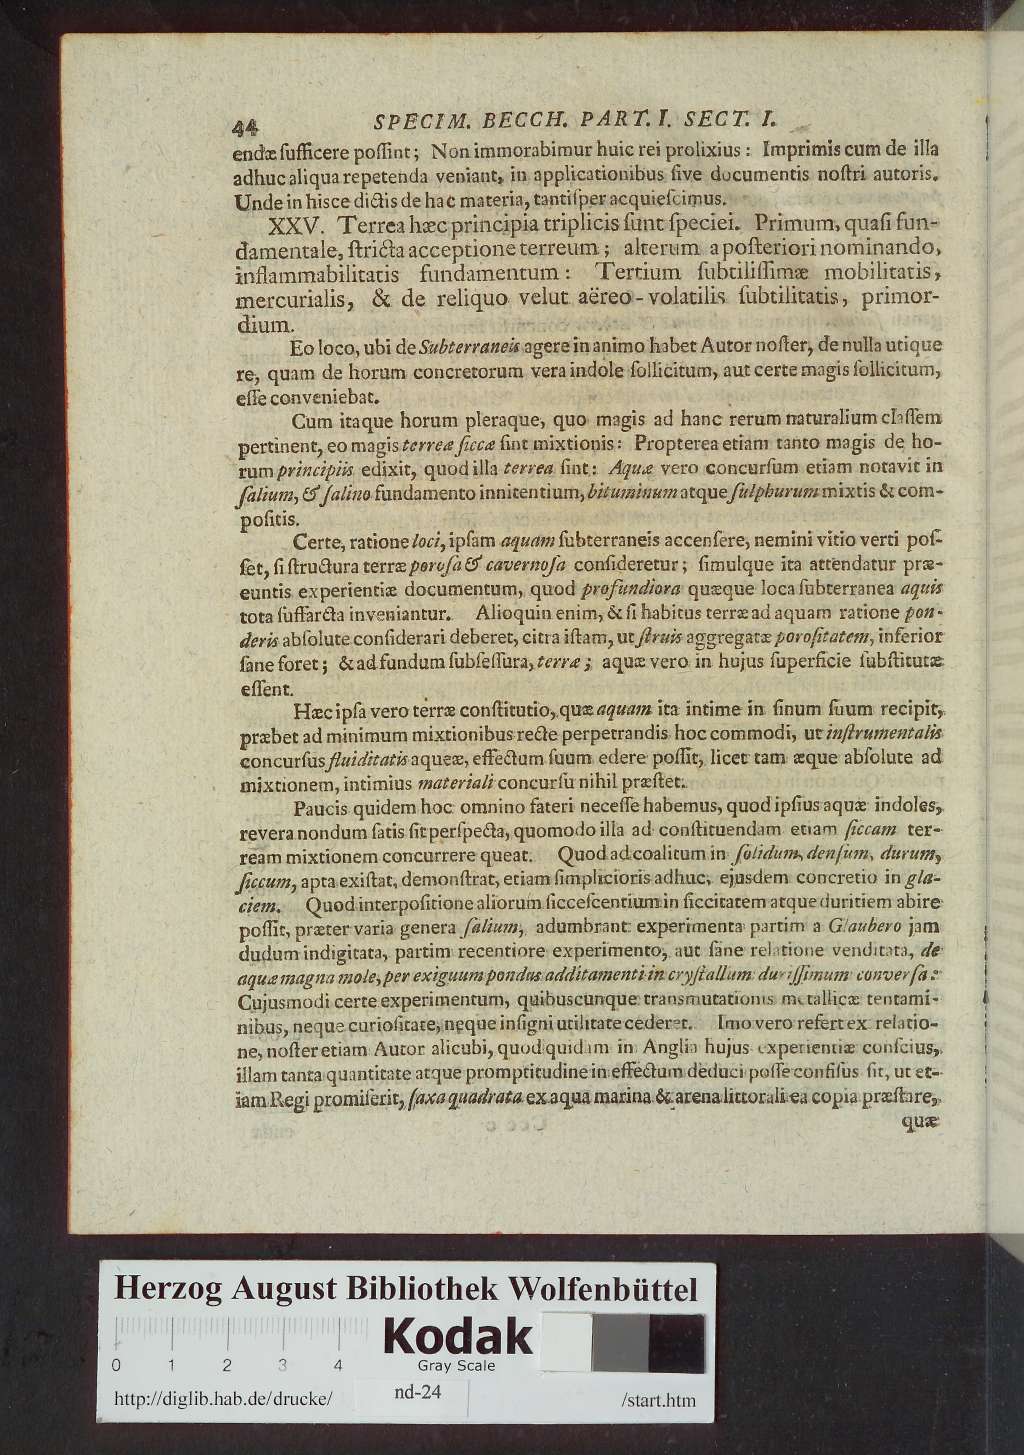 44 SPECIM. BECCH. PART. I. SECT. I.
endæ ſufficere poſſint; Non immorabimur huic rei prolixius: Imprimis cum de illa
adhuc aliqua repetenda veniant, in applicationibus ſive documentis noſtri autoris.
Unde in hisce dictis de hac materia, tantiſper acquieſcimus.
XXV. Terrea hæc principia triplicis ſunt ſpeciei. Primum, quaſi fun-
damentale, ſtricta acceptione terreum; alterum a poſteriori nominando,
inflammabilitatis fundamentum: Tertium ſubtiliſſimæ mobilitatis,
mercurialis, & de reliquo velut aëreo-volatilis ſubtilitatis, primor-
dium.
Eo loco, ubi de Subterraneis agere in animo habet Autor noſter, de nulla utique
re, quam de horum concretorum vera indole ſollicitum, aut certe magis ſollicitum,
eſſe conveniebat.
Cum itaque horum pleraque, quo magis ad hanc rerum naturalium claſſem
pertinent, eo magis terreæ ſiccæ ſint mixtionis: Propterea etiam tanto magis de ho-
rum principiis edixit, quod illa terrea ſint: Aquæ vero concurſum etiam notavit in
ſalium, & ſalino fundamento innitentium, bituminum atque ſulphurum mixtis & com-
poſitis.
Certe, ratione loci, ipſam aquam ſubterraneis accenſere, nemini vitio verti poſ-
ſet, ſi ſtructura terræ poroſa & cavernoſa conſideretur; ſimulque ita attendatur præ-
euntis experientiæ documentum, quod profundiora quæque loca ſubterranea aquis
tota ſuffarcta inveniantur. Alioquin enim, & ſi habitus terræ ad aquam ratione pon-
deris abſolute conſiderari deberet, citra iſtam, ut ſtruis aggregatæ poroſitatem, inferior
ſane foret; & ad fundum ſubſeſſura, terræ; aquæ vero in hujus ſuperficie ſubſtitutæ
eſſent.
Hæc ipſa vero terræ conſtitutio, quæ aquam ita intime in ſinum ſuum recipit,
præbet ad minimum mixtionibus recte perpetrandis hoc commodi, ut inſtrumentalis
concurſus fluiditatis aqueæ, effectum ſuum edere poſſit, licet tam æque abſolute ad
mixtionem, intimius materiali concurſu nihil præſtet.
Paucis quidem hoc omnino fateri neceſſe habemus, quod ipſius aquæ indoles,
revera nondum ſatis ſit perſpecta, quomodo illa ad conſtituendam etiam ſiccam ter-
ream mixtionem concurrere queat. Quod ad coalitum in ſolidum, denſum, durum,
ſiccum, apta exiſtat, demonſtrat, etiam ſimplicioris adhuc, ejusdem concretio in gla-
ciem. Quod interpoſitione aliorum ſicceſcentium in ſiccitatem atque duritiem abire
poſſit, præter varia genera ſalium, adumbrant experimenta partim a Glaubero jam
dudum indigitata, partim recentiore experimento, aut ſane relatione venditata, de
aquæ magna mole, per exiguum pondus additamenti in cryſtallum duriſſimum converſa:
Cujusmodi certe experimentum, quibuscunque transmutationis metallicæ tentami-
nibus, neque curioſitate, neque inſigni utilitate cederet. Imo vero refert ex relatio-
ne, noſter etiam Autor alicubi, quod quidam in Anglia hujus experientiæ conſcius,
illam tanta quantitate atque promptitudine in effectum deduci poſſe confiſus ſit, ut et-
iam Regi promiſerit, ſaxa quadrata ex aqua marina & arena littorali ea copia præſtare,
quæ
Herzog August Bibliothek Wolfenbüttel
Kodak
0 1 2 3 4 Gray Scale
http://diglib.hab.de/drucke/ nd-24 /start.htm